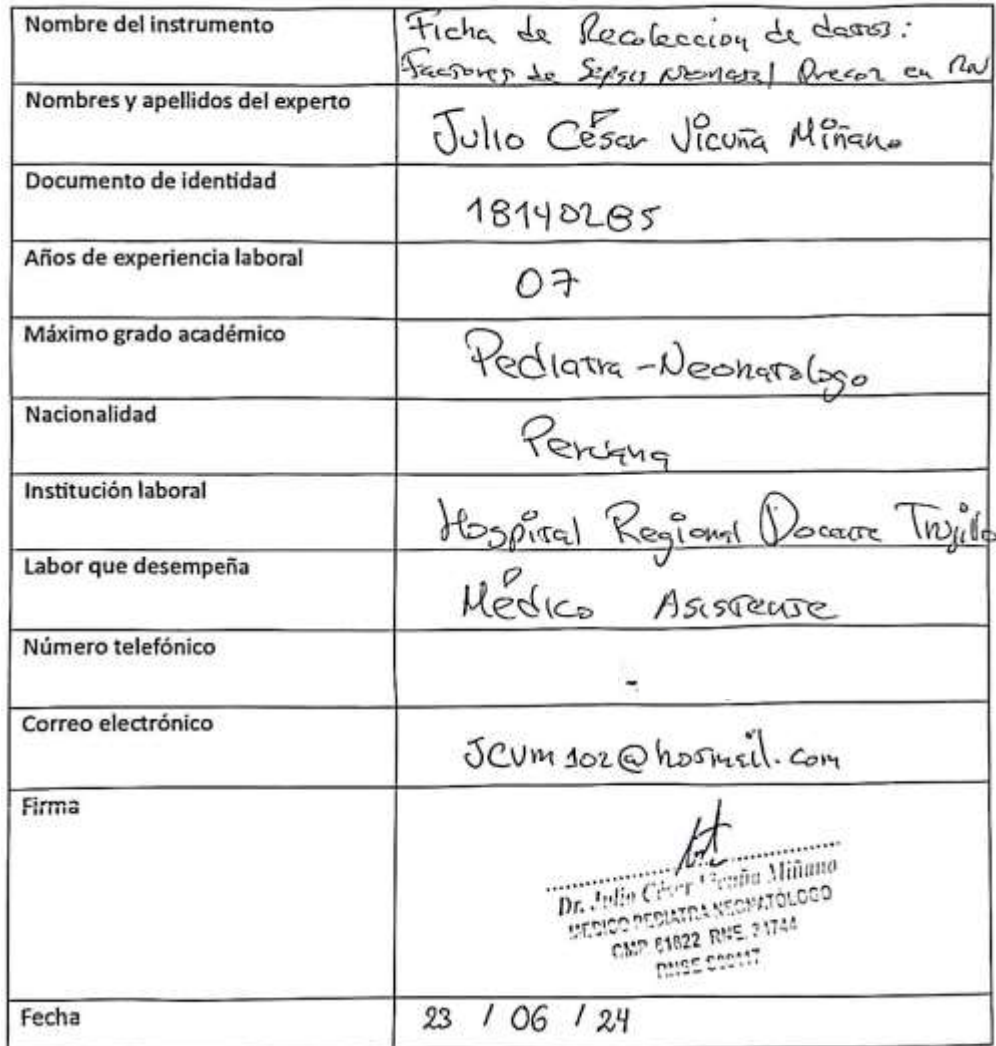 Nombre del instrumento
Ficha de Recolección de datos:
Factores de Sepsis Neonatal Precoz en RN
Nombres y apellidos del experto
Julio César Vicuña Miñano
Documento de identidad
18140285
Años de experiencia laboral
07
Máximo grado académico
Pediatra - Neonatologo
Nacionalidad
Peruana
Institución laboral
Hospital Regional Docente Trujillo
Labor que desempeña
Médico Asistente
Número telefónico
-
Correo electrónico
JCVM102@hotmail.com
Firma
Dr. Julio César Vicuña Miñano
MEDICO PEDIATRA NEONATÓLOGO
CMP 61822 RNE. 31744
Fecha
23 / 06 / 24